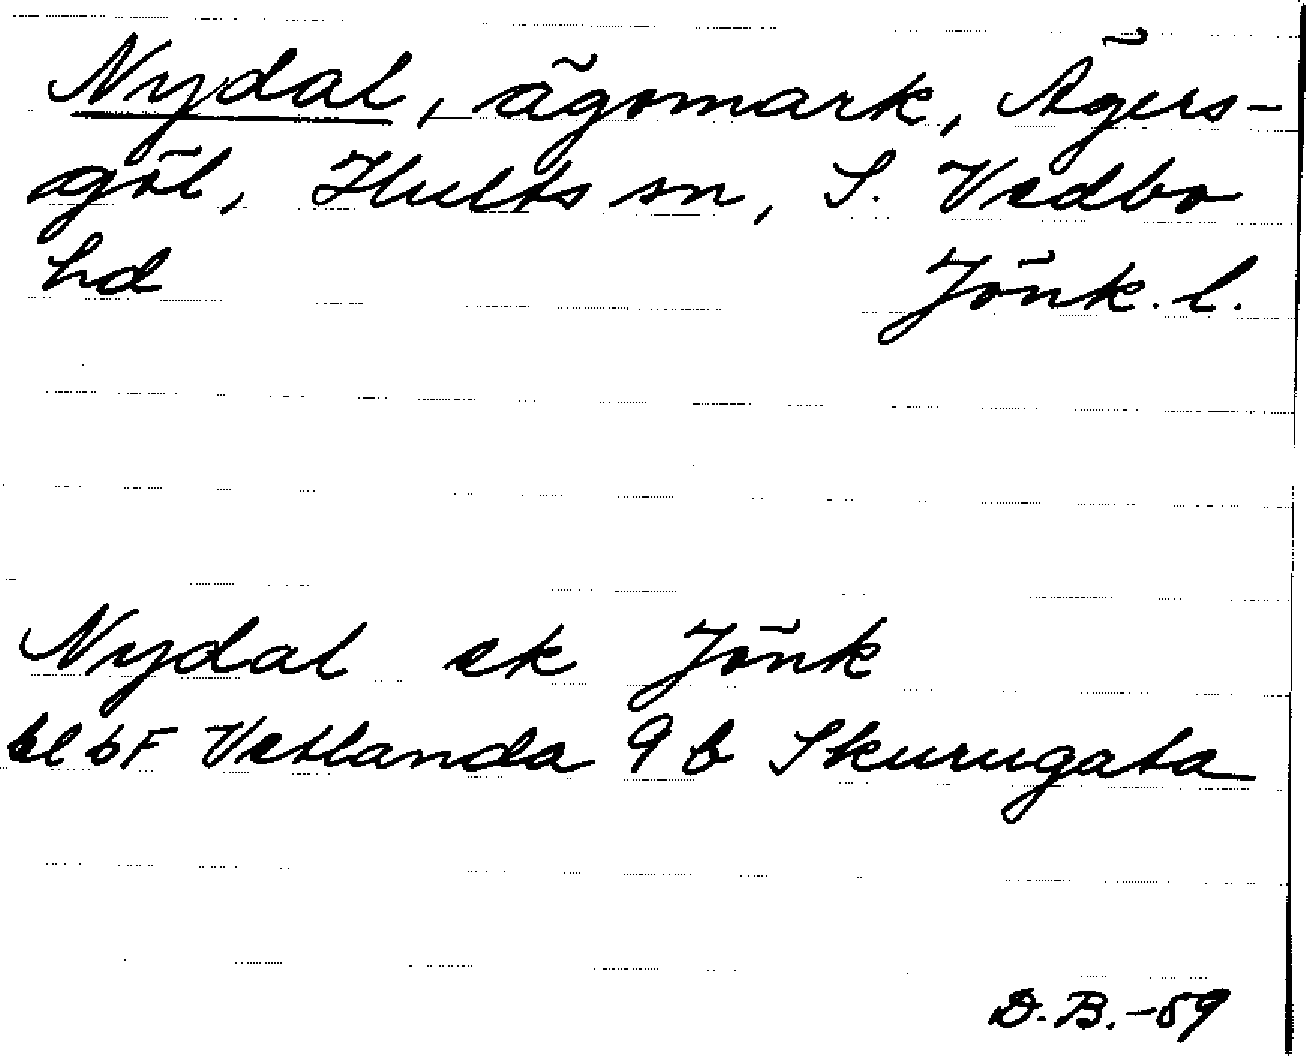 Nydal, ägomark, Ägers-
göl, Hults sn, S. Vedbo
hd Jönk. l.
Nydal ek Jönk
bl bF Vetlanda 9 b Skurugata
D. B. -59